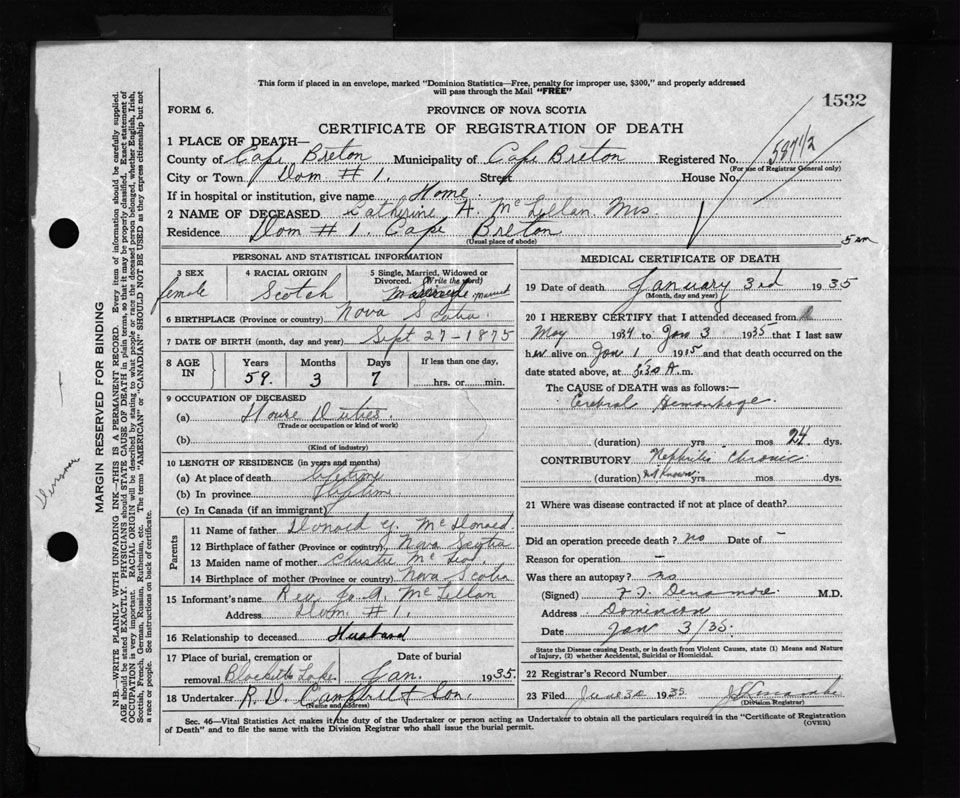 This form if placed in an envelope, marked "Dominion Statistics—Free, penalty for improper use, $300," and properly addressed
will pass through the Mail "FREE"
1532
FORM 6.
PROVINCE OF NOVA SCOTIA
CERTIFICATE OF REGISTRATION OF DEATH
1 PLACE OF DEATH—
County of Cape Breton Municipality of Cape Breton Registered No. 587 1/2
(For use of Registrar General only)
City or Town Dom # 1. Street House No.
If in hospital or institution, give name Home
2 NAME OF DECEASED Catherine A. McLellan. Mrs.
Residence Dom # 1. Cape Breton
(Usual place of abode)
5 am
PERSONAL AND STATISTICAL INFORMATION
3 SEX female
4 RACIAL ORIGIN Scotch
5 Single, Married, Widowed or Divorced. (Write the word) Married
6 BIRTHPLACE (Province or country) Nova Scotia.
7 DATE OF BIRTH (month, day and year) Sept 27-1875
8 AGE IN Years 59. Months 3 Days 7 If less than one day, hrs. or min.
9 OCCUPATION OF DECEASED
(a) House Duties.
(Trade or occupation or kind of work)
(b)
(Kind of industry)
10 LENGTH OF RESIDENCE (in years and months)
(a) At place of death lifetime
(b) In province lifetime
(c) In Canada (if an immigrant)
Parents
11 Name of father Donald McDonald.
12 Birthplace of father (Province or country) Nova Scotia
13 Maiden name of mother Christie McLeod.
14 Birthplace of mother (Province or country) Nova Scotia
15 Informant's name Rev. A. McLellan
Address Dom. # 1.
16 Relationship to deceased Husband
17 Place of burial, cremation or removal Blacketts Lake. Date of burial Jan. 1935.
18 Undertaker R. D. Campbell & Son.
(Name and address)
MEDICAL CERTIFICATE OF DEATH
19 Date of Death January 3rd 1935
(Month, day and year)
20 I HEREBY CERTIFY that I attended deceased from
May 1934 to Jan 3 1935 that I last saw
her alive on Jan 1 1935 and that death occurred on the
date stated above, at 5.30 A. m.
The CAUSE of DEATH was as follows:—
Cerebral Hemorrhage.
(duration) yrs. mos. 24 dys.
CONTRIBUTORY Nephritis Chronic
(duration) not known yrs. mos. dys.
21 Where was disease contracted if not at place of death?
Did an operation precede death? no Date of -
Reason for operation -
Was there an autopsy? no
(Signed) Densmore M.D.
Address Dominion
Date Jan 3/35.
State the Disease causing Death, or in death from Violent Causes, state (1) Means and Nature
of Injury, (2) whether Accidental, Suicidal or Homicidal.
22 Registrar's Record Number
23 Filed June 30 1935
(Division Registrar)
Sec. 46—Vital Statistics Act makes it the duty of the Undertaker or person acting as Undertaker to obtain all the particulars required in the "Certificate of Registration
of Death" and to file the same with the Division Registrar who shall issue the burial permit.
(OVER)
MARGIN RESERVED FOR BINDING
N.B.—WRITE PLAINLY WITH UNFADING INK—THIS IS A PERMANENT RECORD. Every item of information should be carefully supplied.
AGE should be stated EXACTLY. PHYSICIANS should STATE CAUSE OF DEATH in plain terms, so that it may be properly classified. Exact statement of
OCCUPATION is very important. RACIAL ORIGIN will be described by stating to what people or race the deceased person belonged, whether English, Irish,
Scottish, French, German, Russian, Ruthenian, etc. The terms "AMERICAN" or "CANADIAN" SHOULD NOT BE USED as they express citizenship but not
a race or people. See instructions on back of certificate.
Densmore